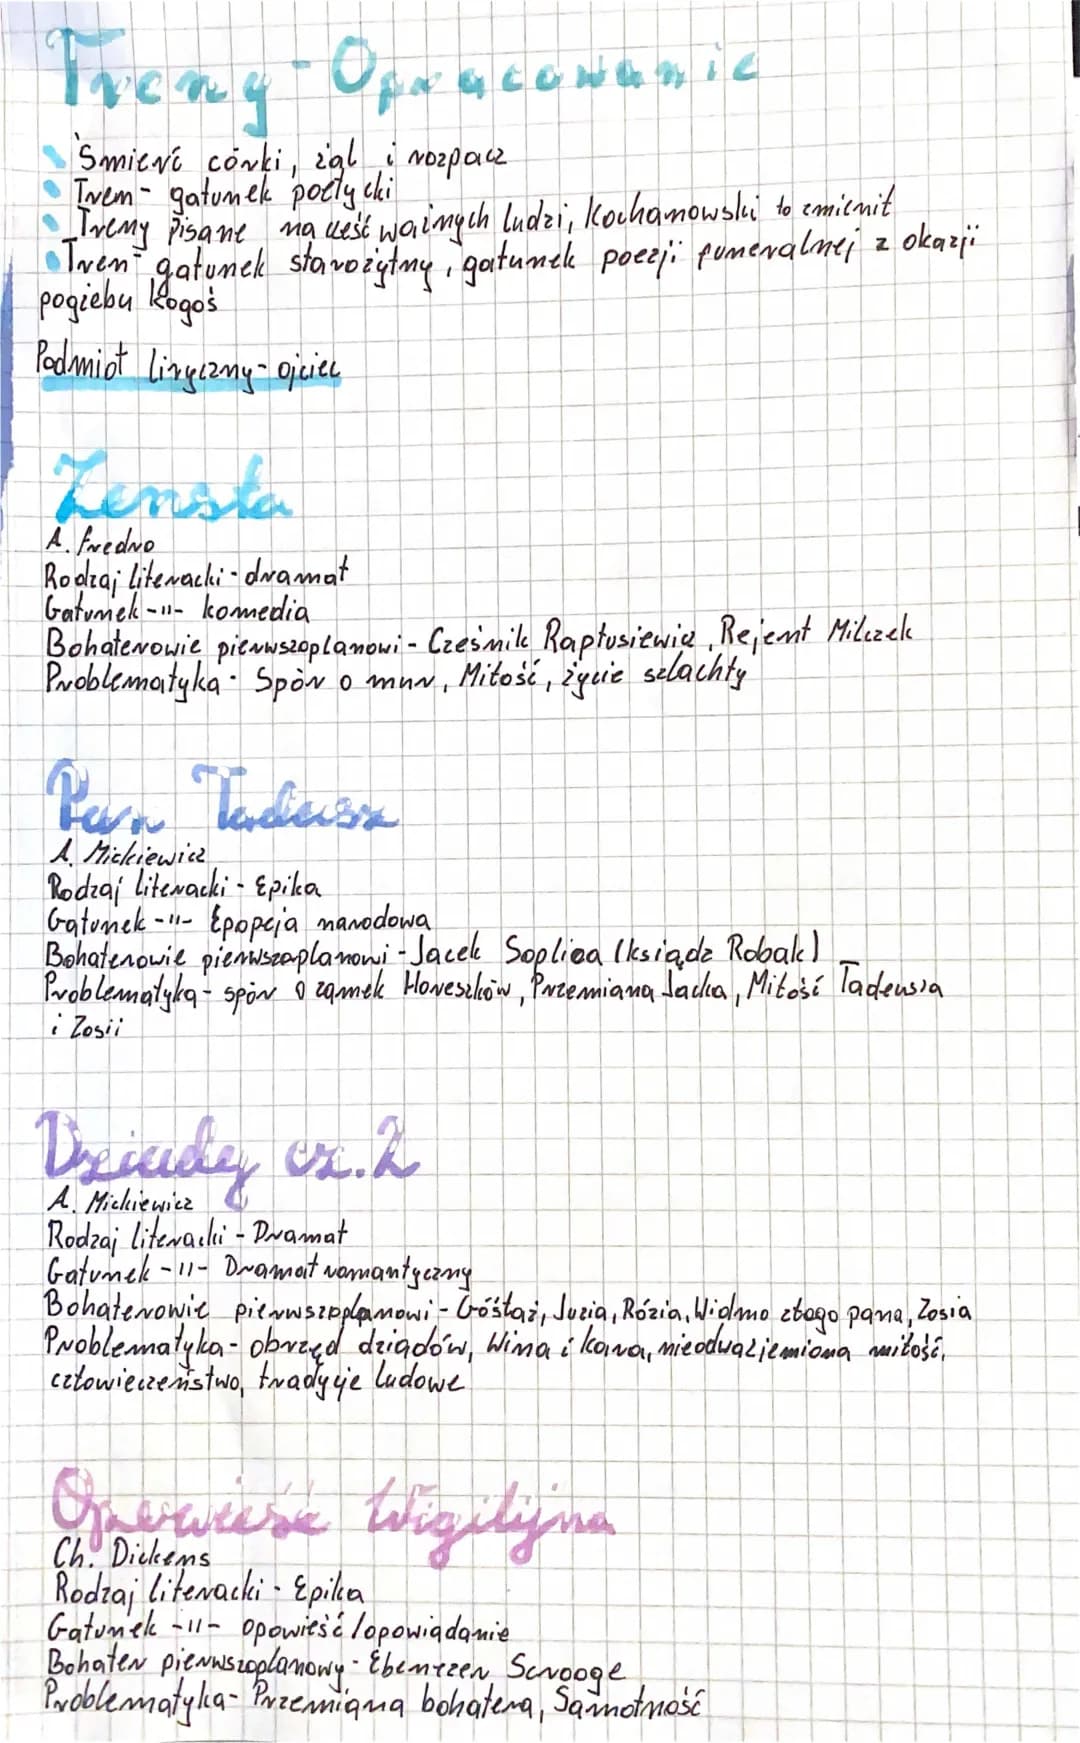 Treny - Opracowanie
Śmierć córki, żal i rozpacz
Tren - gatunek poetycki
Treny pisane na cześć ważnych ludzi, Kochanowski to zmienił
Tren - gatunek starożytny, gatunek poezji funeralnej z okazji
pogżebu kogoś
Podmiot liryczny - ojciec
Zemsta
A. Fredro
Rodzaj literacki - dramat
Gatunek -||- komedia
Bohaterowie pierwszoplanowi - Cześnik Raptusiewicz, Rejent Milczek
Problematyka - Spór o mur, Miłość, życie szlachty
Pan Tadeusz
A. Mickiewicz
Rodzaj literacki - Epika
Gatunek -||- Epopeja narodowa
Bohaterowie pierwszoplanowi - Jacek Soplica (ksiądz Robak)
Problematyka - spór o zamek Horeszków, Przemiana Jacka, Miłość Tadeusza
i Zosii
Dziady cz.2
A. Mickiewicz
Rodzaj literacki - Dramat
Gatunek -||- Dramat romantyczny
Bohaterowie pierwszoplanowi - Góślarz, Józia, Rózia, Widmo złego pana, Zosia
Problematyka - obrzęd dziadów, Wina i kara, nieodwzajemiona miłość,
człowieczeństwo, tradycje ludowe
Opowieść Wigilijna
Ch. Dickens
Rodzaj literacki - Epika
Gatunek -||- opowieść/opowiadanie
Bohater pierwszoplanowy - Ebenezer Scrooge
Problematyka - Przemiana bohatera, Samotność